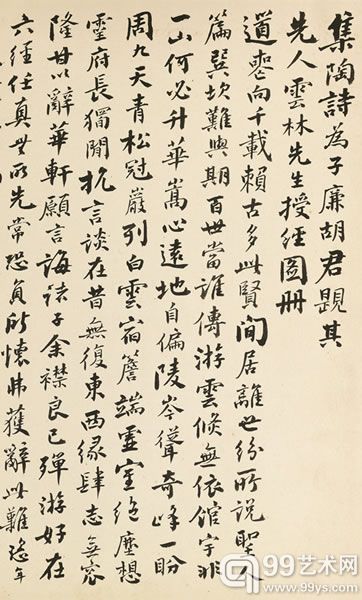 集陶詩為子廉胡君題其
先人雲林先生授經圖冊
道喪向千載賴古多此賢閒居離世紛所說聖人
篇巽坎難與期百世當誰傳游雲倏無依館宇非
一山何必升華嵩心遠地自偏陵岑聳奇峰一盼
周九天青松冠巖列白雲宿簷端虛室絕塵想
靈府長獨閒抗言談在昔無復東西緣肆志無窊
隆甘以辭華軒願言誨諸子余襟良已殫游好在
六經任真無所先常恐負所懷弗獲辭此難 年
99艺术网
99ys.com